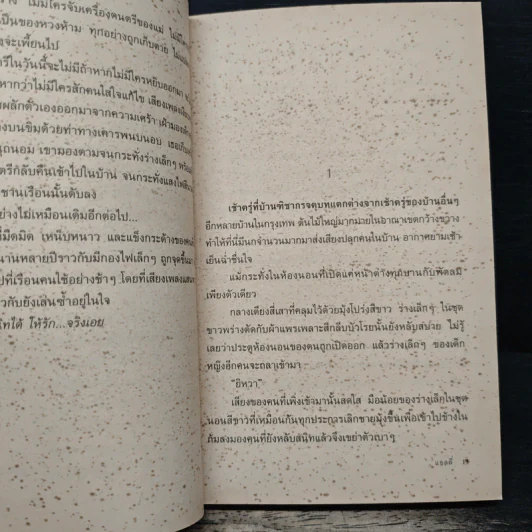 ไม่มีใครจับเครื่องดนตรีของแม่ ไม่มีใคร
เป็นของหวงห้าม ทุกอย่างถูกเก็บ
จะเพี้ยนไป
รีในวันนี้จะไม่มีถ้าหากไม่มีใครหยิบออกมา
หากว่าไม่มีใครสักคนใส่ใจแก้ไข เสียงเพลง
ผลักตัวเองออกมาจากความเศร้า
บนขิมด้วยท่าทางเคารพนบนอบ
นุถนอม เขามองตามจนกระทั่งร่างเล็กๆ
ตรีกลับคืนเข้าไปในบ้าน จนกระทั่งแสงไฟ
ชานเรือนนั้นดับลง
ย่างไม่เหมือนเดิมอีกต่อไป...
ที่มืดมิด เหน็บหนาว และแข็งกระด้างของ
นานหลายปีราวกับมีกองไฟเล็กๆ ถูกจุดขึ้น
ที่เรือนคนใช้อย่างช้าๆ โดยที่เสียงเพลง
วกับยังเล่นซ้ำอยู่ในใจ
ให้รัก...จริงเอย
1
เช้าตรู่ที่บ้านพิชากรจตุบทแตกต่างจากเช้าตรู่ของบ้านอื่นๆ
อีกหลายบ้านในกรุงเทพ ต้นไม้ใหญ่มากมายในอาณาเขตกว้างขวาง
ทำให้ที่นี่มีนกจำนวนมากมาส่งเสียงปลุกคนในบ้าน อากาศยามเช้า
เย็นฉ่ำชื่นใจ
แม้กระทั่งในห้องนอนที่เปิดแค่หน้าต่างทุกบานกับพัดลม
เพียงตัวเดียว
กลางเตียงสี่เสาที่คลุมไว้ด้วยมุ้งโปร่งสีขาว ร่างเล็กๆ ในชุด
ขาวพร่างตัดกับผ้าแพรเพลาะสีกลีบบัวโรยนั้นยังหลับสบาย ไม่รู้
เลยว่าประตูห้องนอนของตนถูกเปิดออก แล้วร่างเล็กๆ ของเด็ก
หญิงอีกคนจะถลาเข้ามา
"ยิหวา"
เสียงของคนที่เพิ่งเข้ามานั้นสดใส มือน้อยของร่างเล็กในชุด
นอนสีขาวที่เหมือนกันทุกประการเลิกชายมุ้งขึ้นเพื่อเข้าไปข้างใน
ก้มลงมองคนที่ยังหลับสนิทแล้วจึงเขย่าตัวเบาๆ
19